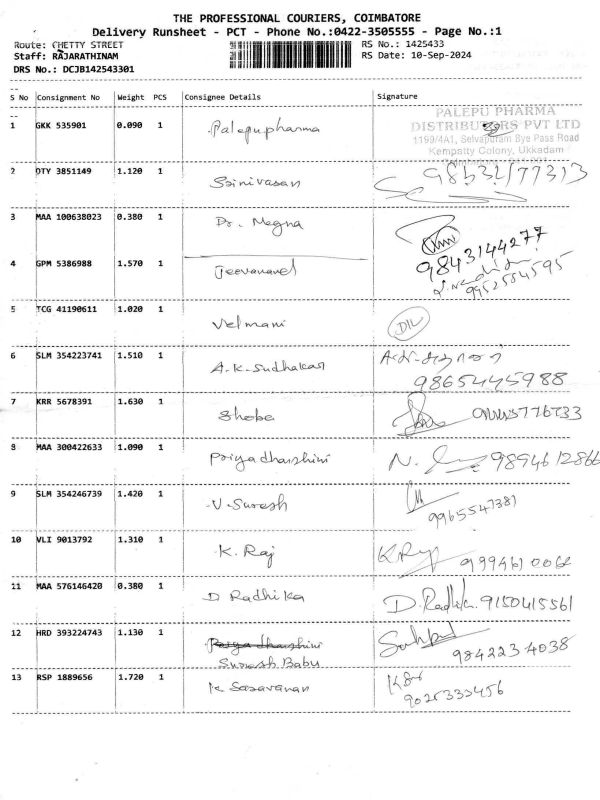 THE PROFESSIONAL COURIERS, COIMBATORE
Delivery Runsheet - PCT - Phone No.:0422-3505555 - Page No.:1
Route: CHETTY STREET
Staff: RAJARATHINAM
DRS No.: DCJB142543301
RS No.: 1425433
RS Date: 10-Sep-2024
S No Consignment No Weight PCS Consignee Details Signature
1 GKK 535901 0.090 1 Palepupharma
PALEPU PHARMA
DISTRIBUTORS PVT LTD
1199/4A1, Selvapuram Bye Pass Road
Kempatty Colony, Ukkadam
2 DTY 3851149 1.120 1 Srinivasan
3 MAA 100638023 0.380 1 Dr. Megna
9843144277
4 GPM 5386988 1.570 1 Jeevanand
9952554595
5 TCG 41190611 1.020 1 Velmani
6 SLM 354223741 1.510 1 A.K. Sudhakar
9865445988
7 KRR 5678391 1.630 1 Shoba
8 MAA 300422633 1.090 1 Priyadharshini N. 9894612866
9 SLM 354246739 1.420 1 V. Suresh
9965547381
10 VLI 9013792 1.310 1 K. Raj K.Raj
11 MAA 576146420 0.380 1 D Radhika D. Radhika 9150415561
12 HRD 393224743 1.130 1 Priyadharshini
Suresh Babu
9842234038
13 RSP 1889656 1.720 1 K Saravanan
9025333456